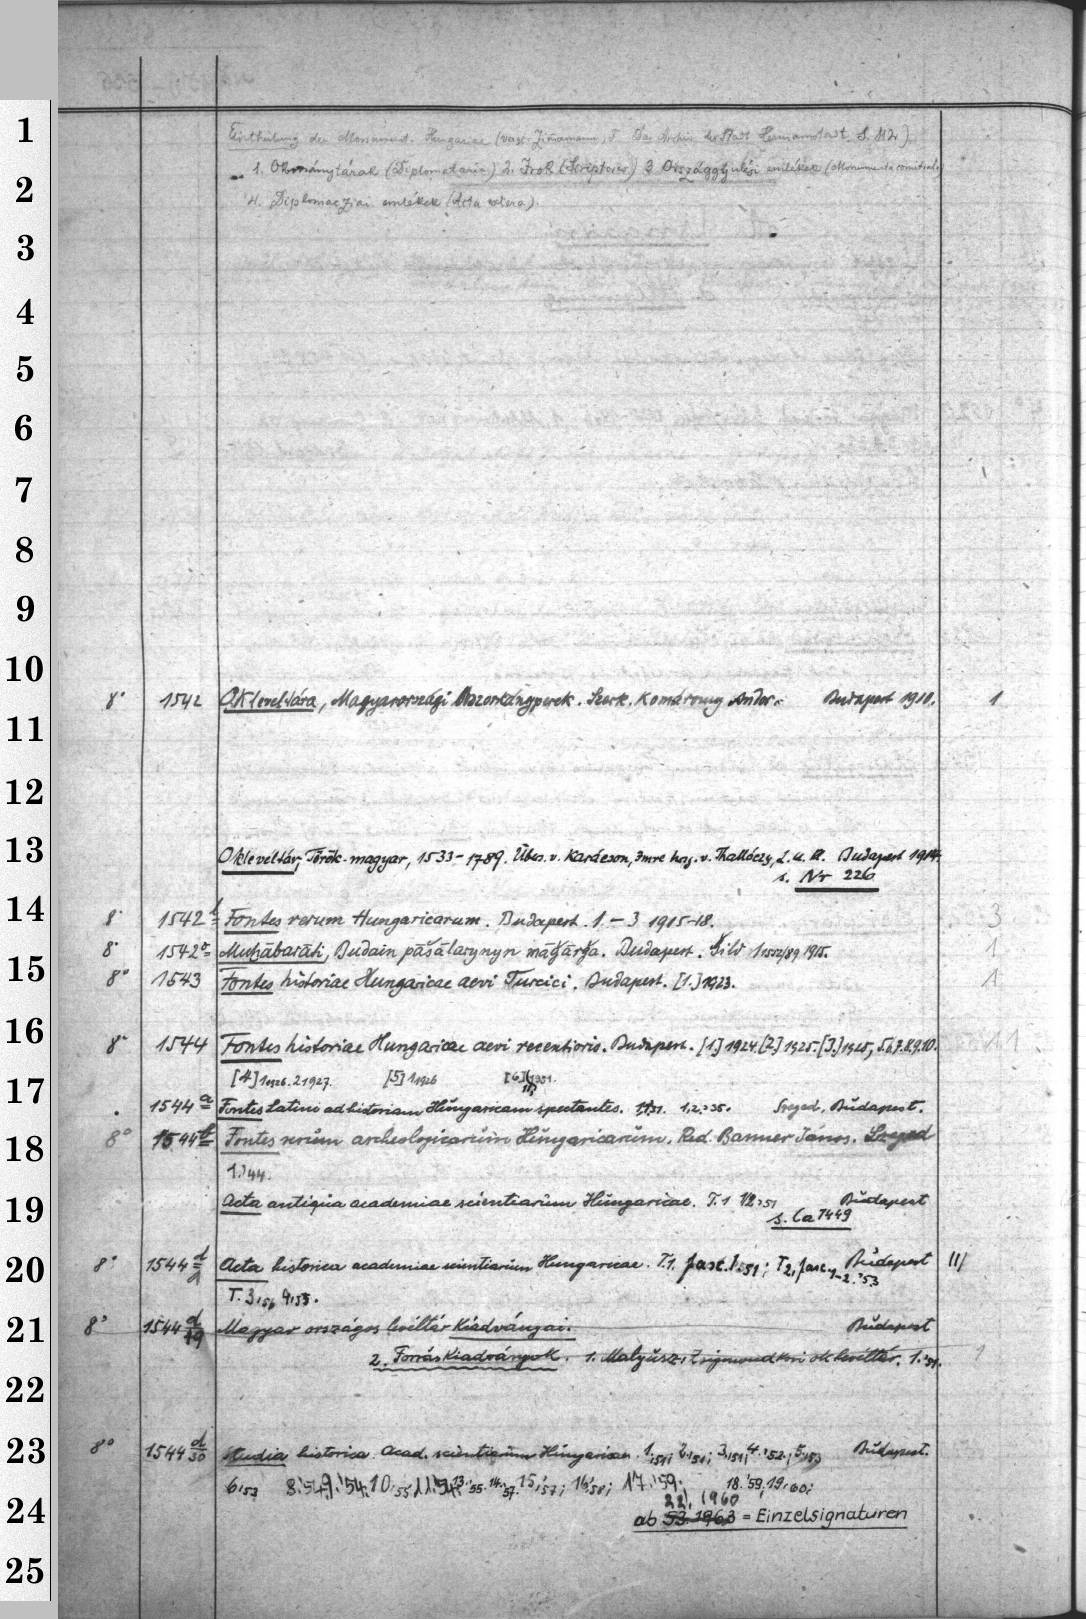 1. Okmánytárak (Diplomataria) 2. Irók (Scriptores) 3 Országgyülési emlékek (Monumenta comitialia
4. Diplomacziai emlékek (Acta extera).
8° 1542 Oklevéltára, Magyarországi Boszorkányperek. Szerk. Komáromy Andor. Budapest 1910. 1
Oklevéltár, Török-magyar, 1533-1789. Übers. v. Karácson, Imre hrsg. v. Thallóczy, L. u. Budapest 1914.
s. Nr 226
8° 1542 b Fontes rerum Hungaricarum. Budapest. 1. - 3 1915-18. 3
8° 1542 Budain Budapest. 1
8° 1543 Fontes historiae Hungaricae aevi Turcici. Budapest. [1.] 1923. 1
8° 1544 Fontes historiae Hungaricae aevi recentioris. Budapest. [1] 1924. [2] 1925. [3.] 1925, 5.6.7.8.9.10.
[4] 1 1926. 2 1927. [5] 1 1926 [6] 1 1931.
1544 a Fontes Latini ad historiam Hungaricam spectantes. 1.'31. 1,2.'35. Szeged, Budapest.
8° 1544 b Fontes rerum archeologicarum Hungaricarum. Red. Banner János. Szeged
1.'44.
Acta antiqua academiae scientiarum Hungaricae. T. 1 1/2,'51 Budapest
s. Ca 7449
8° 1544 d/1 Acta historica academiae scientiarum Hungaricae. T. 1, fasc. 1.'51; T 2, fasc. 1-2.'53 Budapest III
T. 3,'54 4,'55.
8° 1544 d/19 Magyar országos levéltár Kiadványai. Budapest
2. Forráskiadványok. 1. Mályusz, Zsigmondkori oklevéltár. 1.'51. 1
8° 1544 d/30 Studia historica Acad. scientiarum Hungaricae. 1,'51; 2,'51; 3,'51; 4.'52.; 5,'53 Budapest.
6,'53 8.'54 9.'54. 10,'55 11.'54 13.'55. 14.'57. 15,'57; 16,'58; 17.'59. 18.'59; 19.'60;
22, 1960
ab 53. 1963 = Einzelsignaturen
1
2
3
4
5
6
7
8
9
10
11
12
13
14
15
16
17
18
19
20
21
22
23
24
25